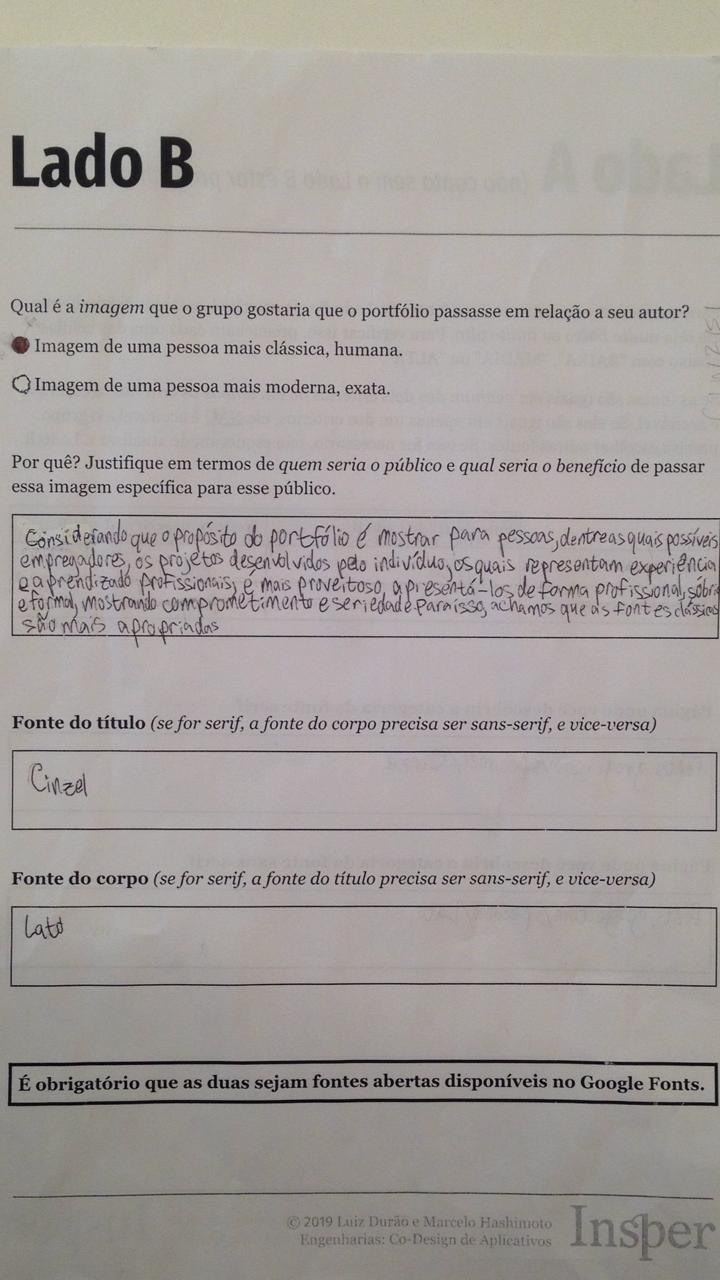 Lado B
Qual é a imagem que o grupo gostaria que o portfólio passasse em relação a seu autor?
Imagem de uma pessoa mais clássica, humana.
Imagem de uma pessoa mais moderna, exata.
Por quê? Justifique em termos de quem seria o público e qual seria o benefício de passar
essa imagem específica para esse público.
Considerando que o propósito do portfólio é mostrar para pessoas, dentre as quais possíveis
empregadores, os projetos desenvolvidos pelo indivíduo, os quais representam experiência
e aprendizado profissionais, é mais proveitoso apresentá-los de forma profissional, sóbria
e formal, mostrando comprometimento e seriedade para isso, achamos que as fontes clássicas
são mais apropriadas
Fonte do título (se for serif, a fonte do corpo precisa ser sans-serif, e vice-versa)
Cinzel
Fonte do corpo (se for serif, a fonte do título precisa ser sans-serif, e vice-versa)
Lato
É obrigatório que as duas sejam fontes abertas disponíveis no Google Fonts.
© 2019 Luiz Durão e Marcelo Hashimoto
Engenharias: Co-Design de Aplicativos
Insper